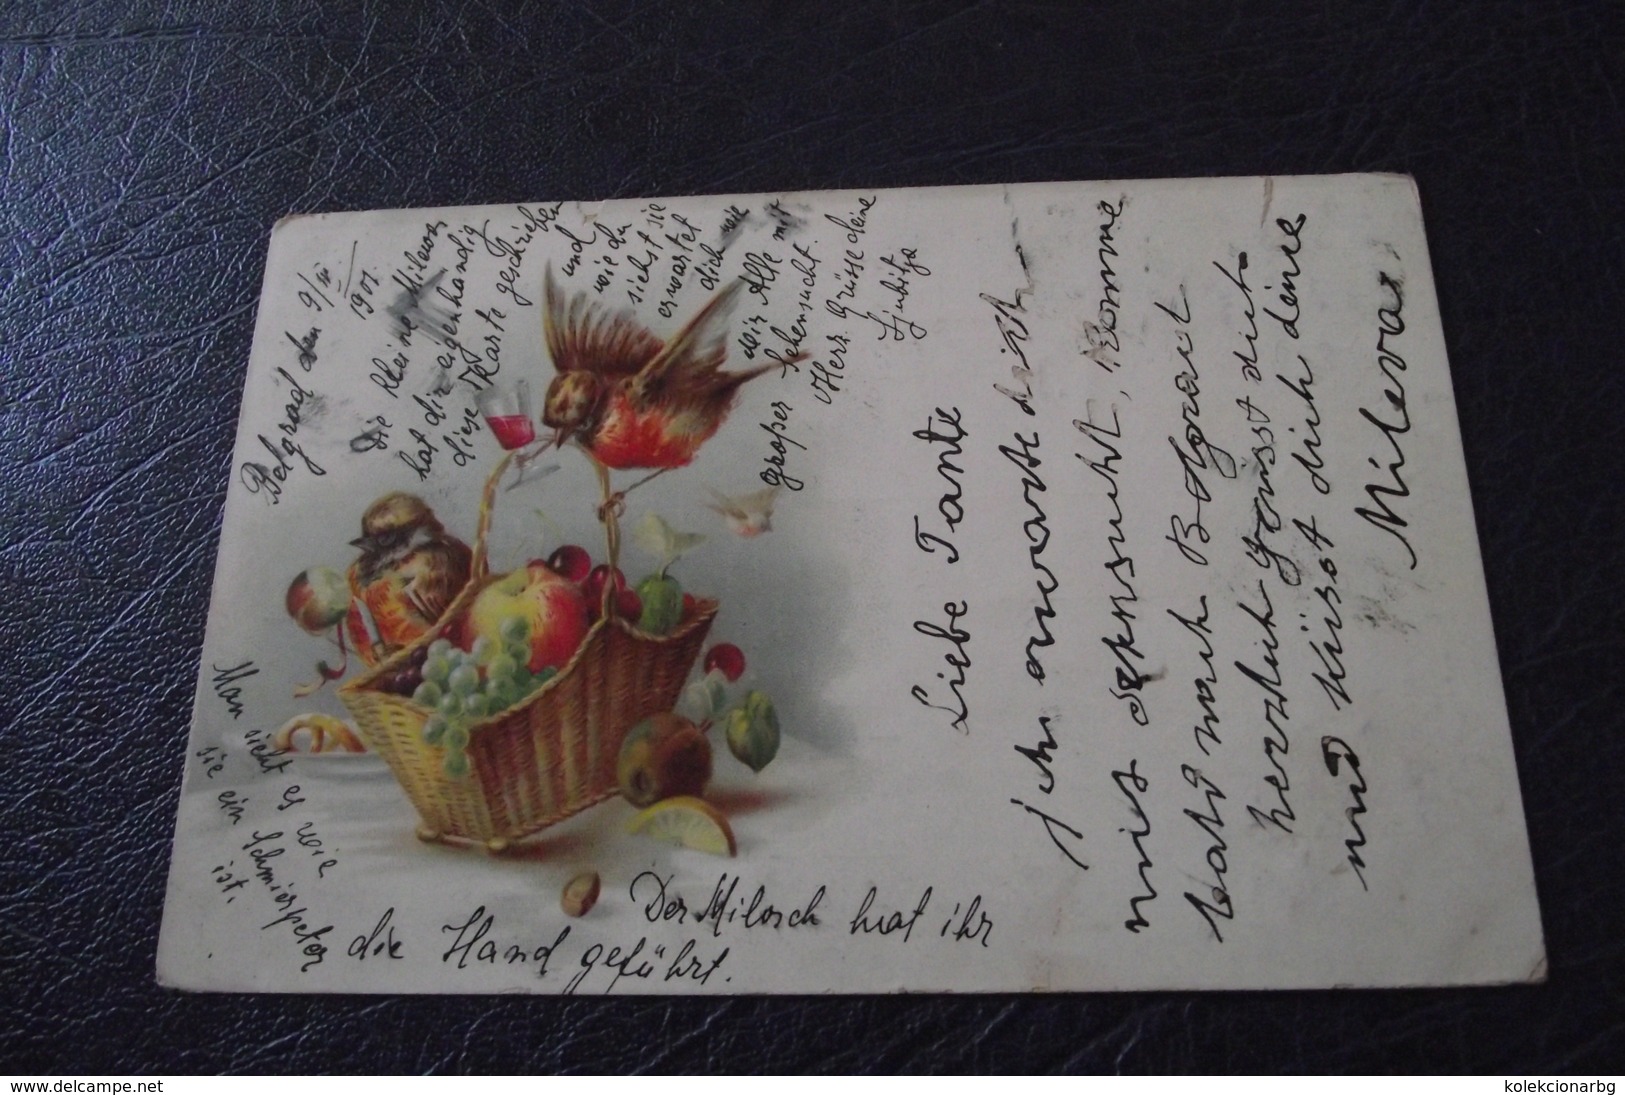 Belgrad den 9/III 1901
Die kleine Milewa
hat dir eigenhändig
diese Karte geschrieben
und
wie du
siehst sie
erwartet
dich wie
wir Alle mit
großer Sehensucht.
Herz. Grüsse deine
Ljubitza
Liebe Tante
ich erwarte dich
mit sehnsucht, komme
bald nach Belgrad
herzlich grüsst dich
und küsst dich deine
Mileva
Man sieht es wie
sie ein Schmierpeter
ist.
Der Milosch hat ihr
die Hand geführt.
www.delcampe.net
kolekcionarbg